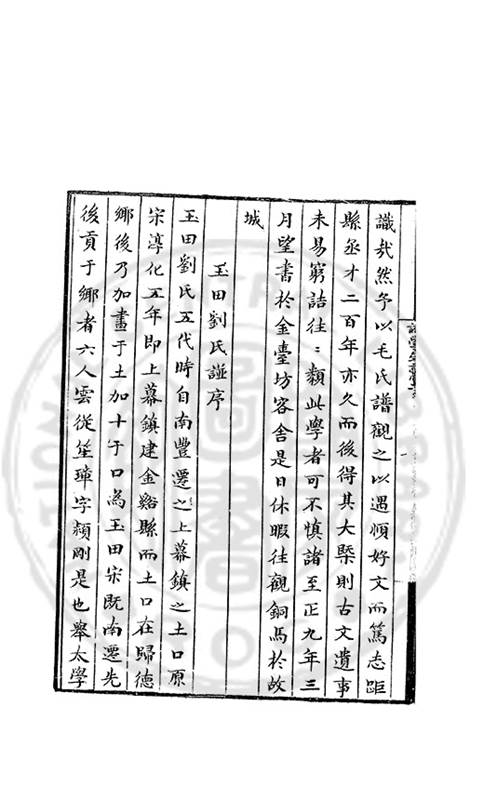 識㢤然予以毛氏譜觀之以遇順好文而篤志距
縣丞才二百年亦久而後得其大槩則古文遺事
未易窮詰往〻類此學者可不慎諸至正九年三
月望書於金臺坊客舍是日休暇往觀銅馬於故
城
玉田劉氏譜序
玉田劉氏五代時自南豐遷之上幕鎮之土口原
宋淳化五年即上幕鎮建金谿縣而土口在歸德
鄉後乃加畫于土加十于口為玉田宋既南遷先
後貢于鄉者六人雲從笙瑋字頴剛是也舉太學